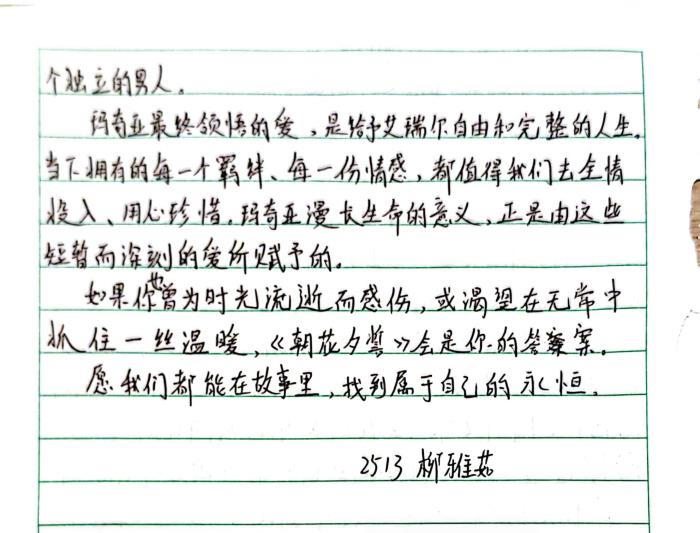 个独立的男人。
玛奇亚最终领悟的爱，是给予艾瑞尔自由和完整的人生。
当下拥有的每一个羁绊、每一份情感，都值得我们去全情
投入、用心珍惜。玛奇亚漫长生命的意义，正是由这些
短暂而深刻的爱所赋予的。
如果你也曾为时光流逝而感伤，或渴望在无常中
抓住一丝温暖，《朝花夕誓》会是你的答案。
愿我们都能在故事里，找到属于自己的永恒。
2513 柳雅茹